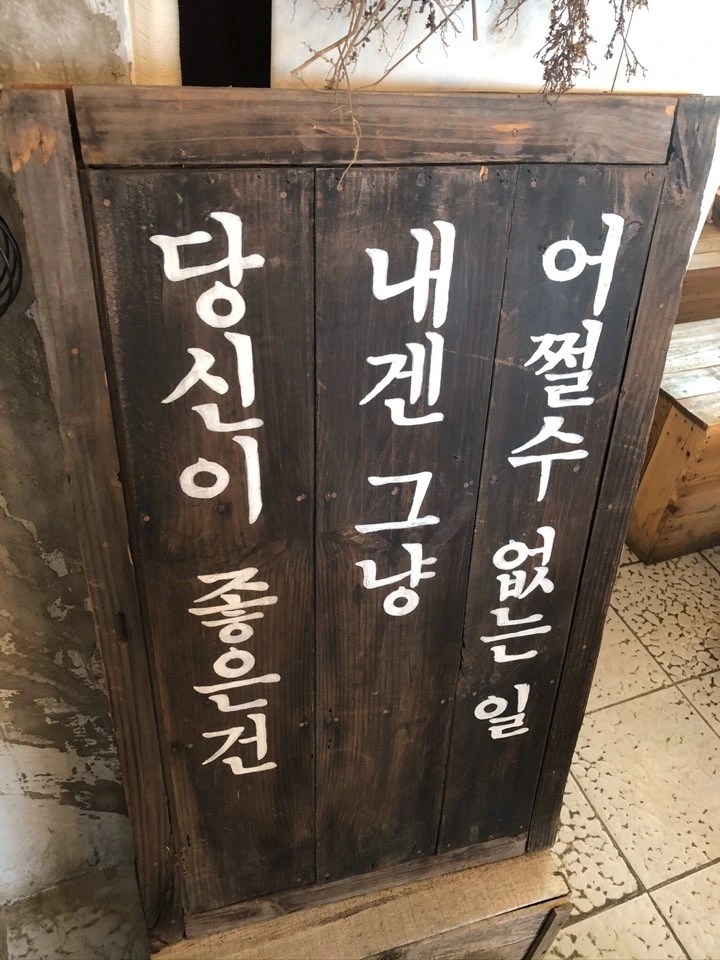 당신이 좋은건
내겐 그냥
어쩔수 없는 일